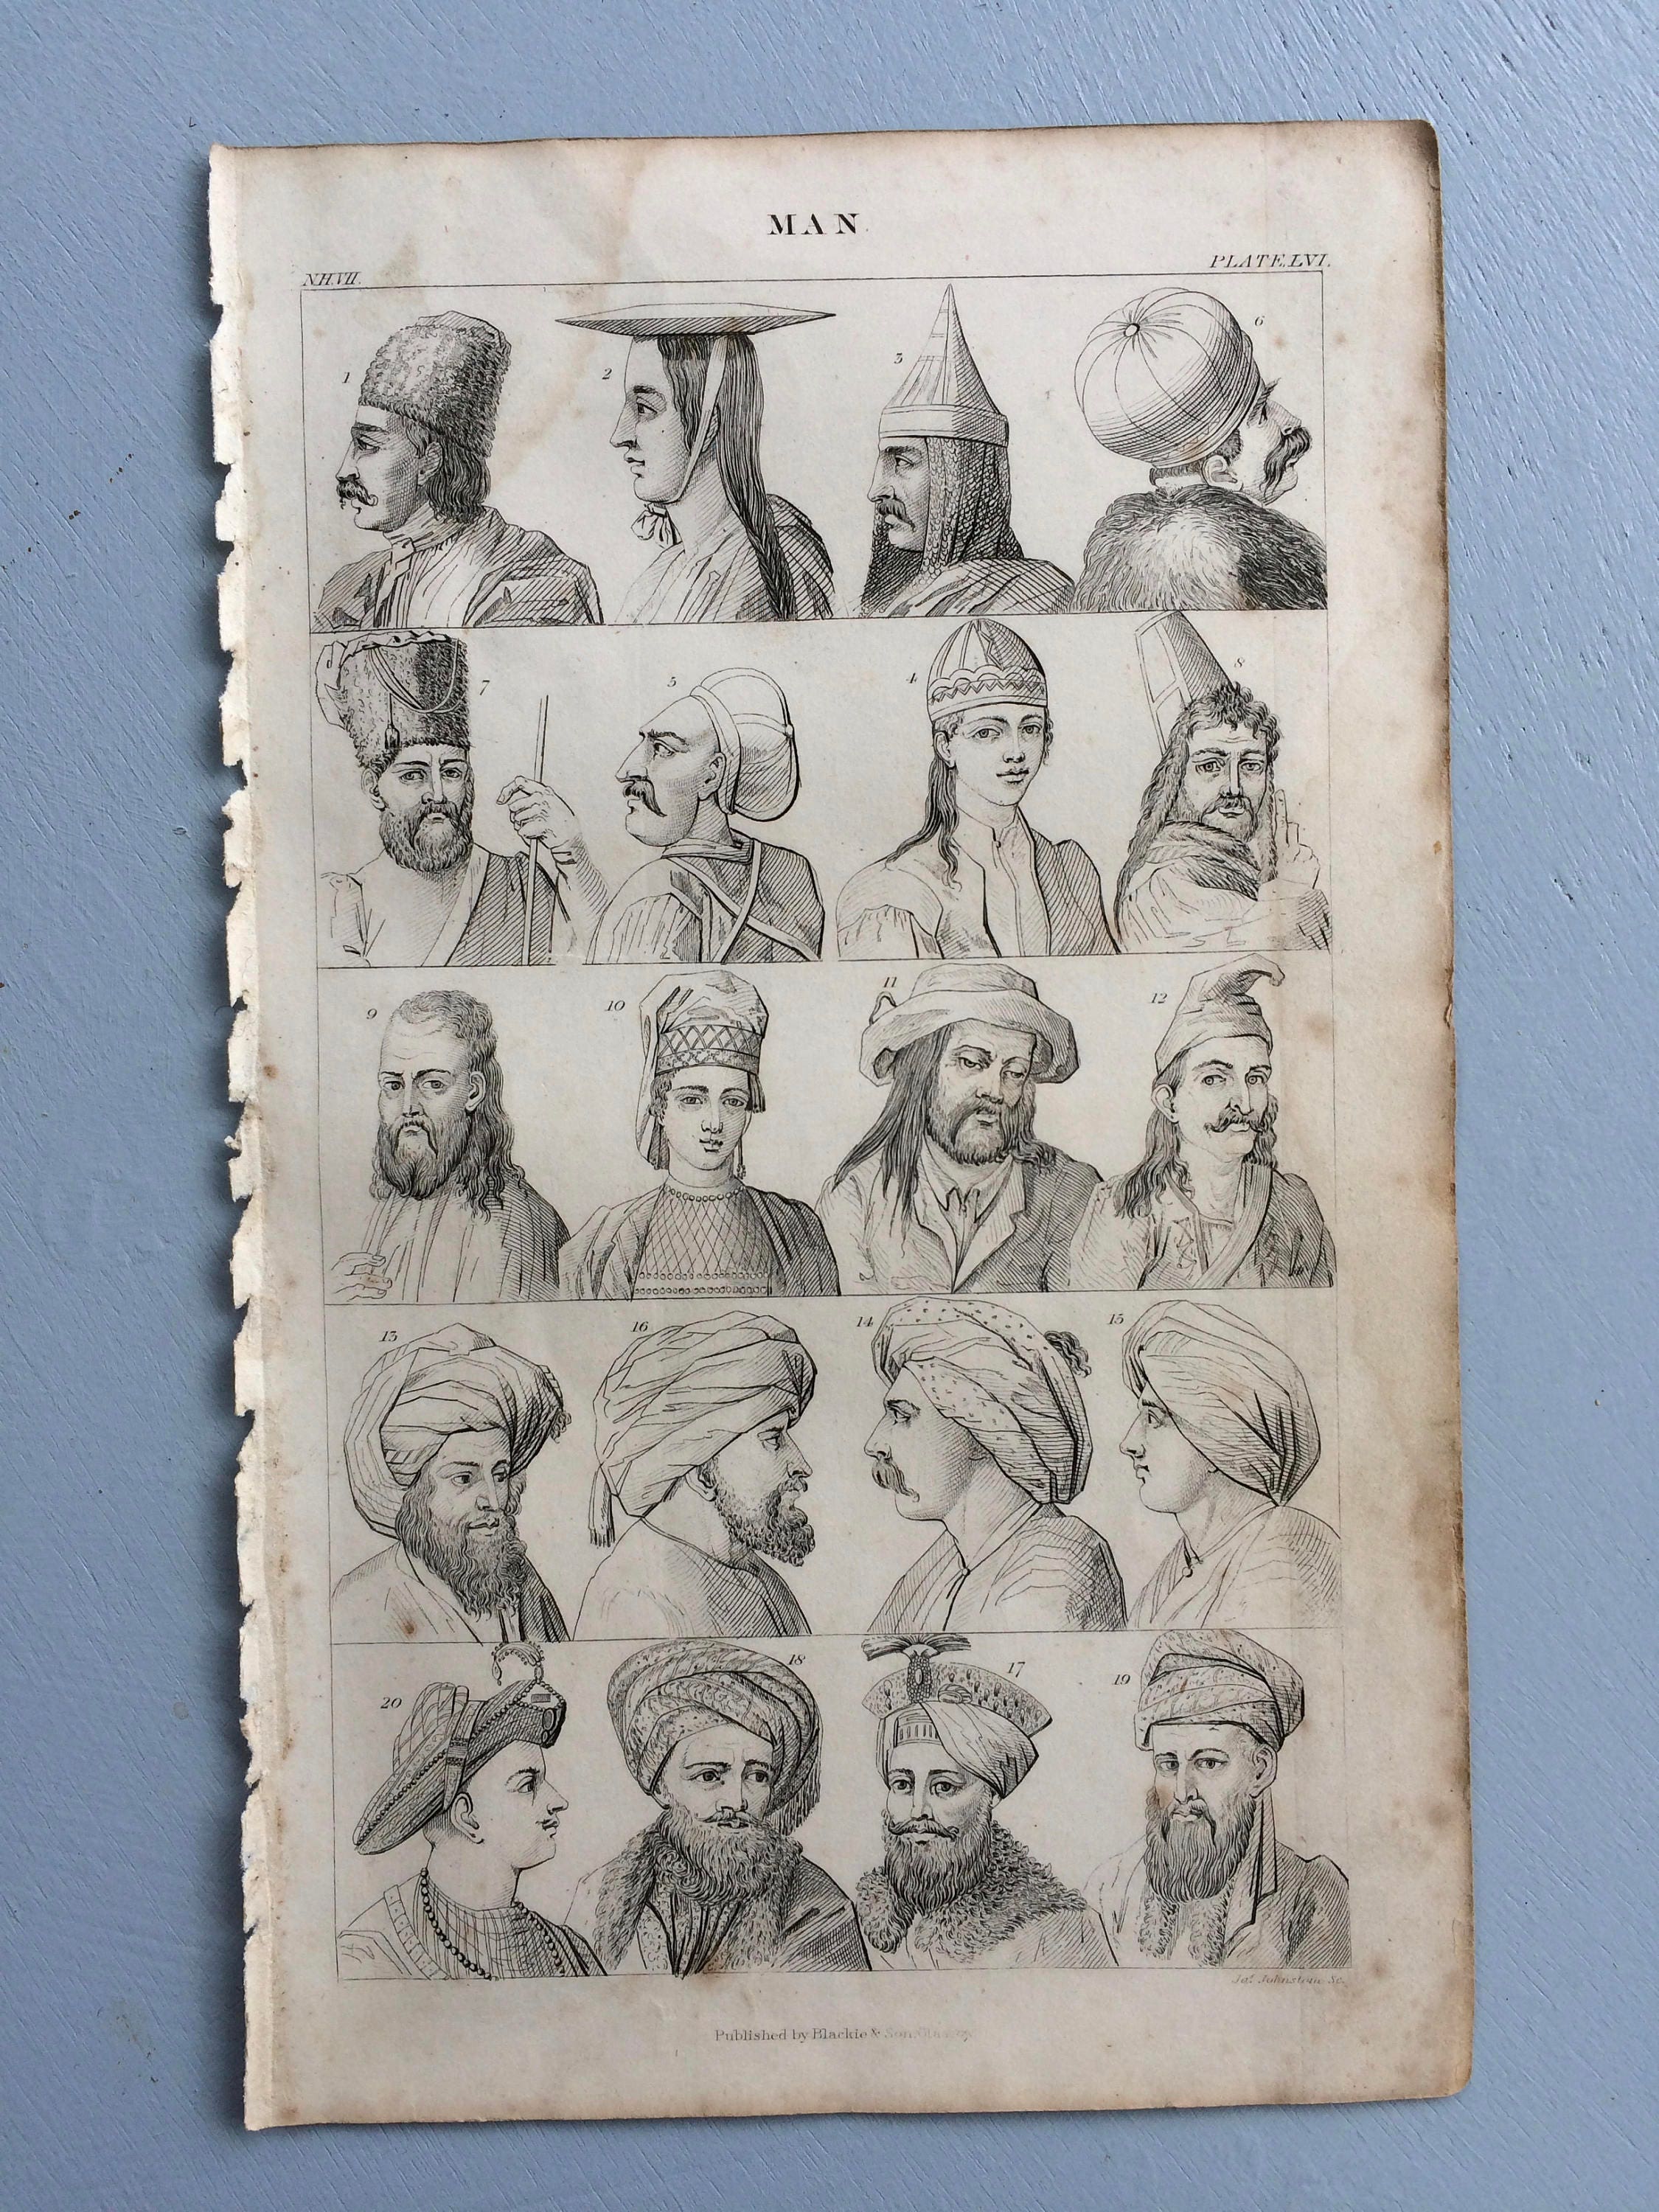 MAN.
N.H.VII.
PLATE.LVI.
1
2
3
6
7
5
4
8
9
10
11
12
13
16
14
15
20
18
17
19
Jos. Johnstone Sc.
Published by Blackie & Son, Glasgow